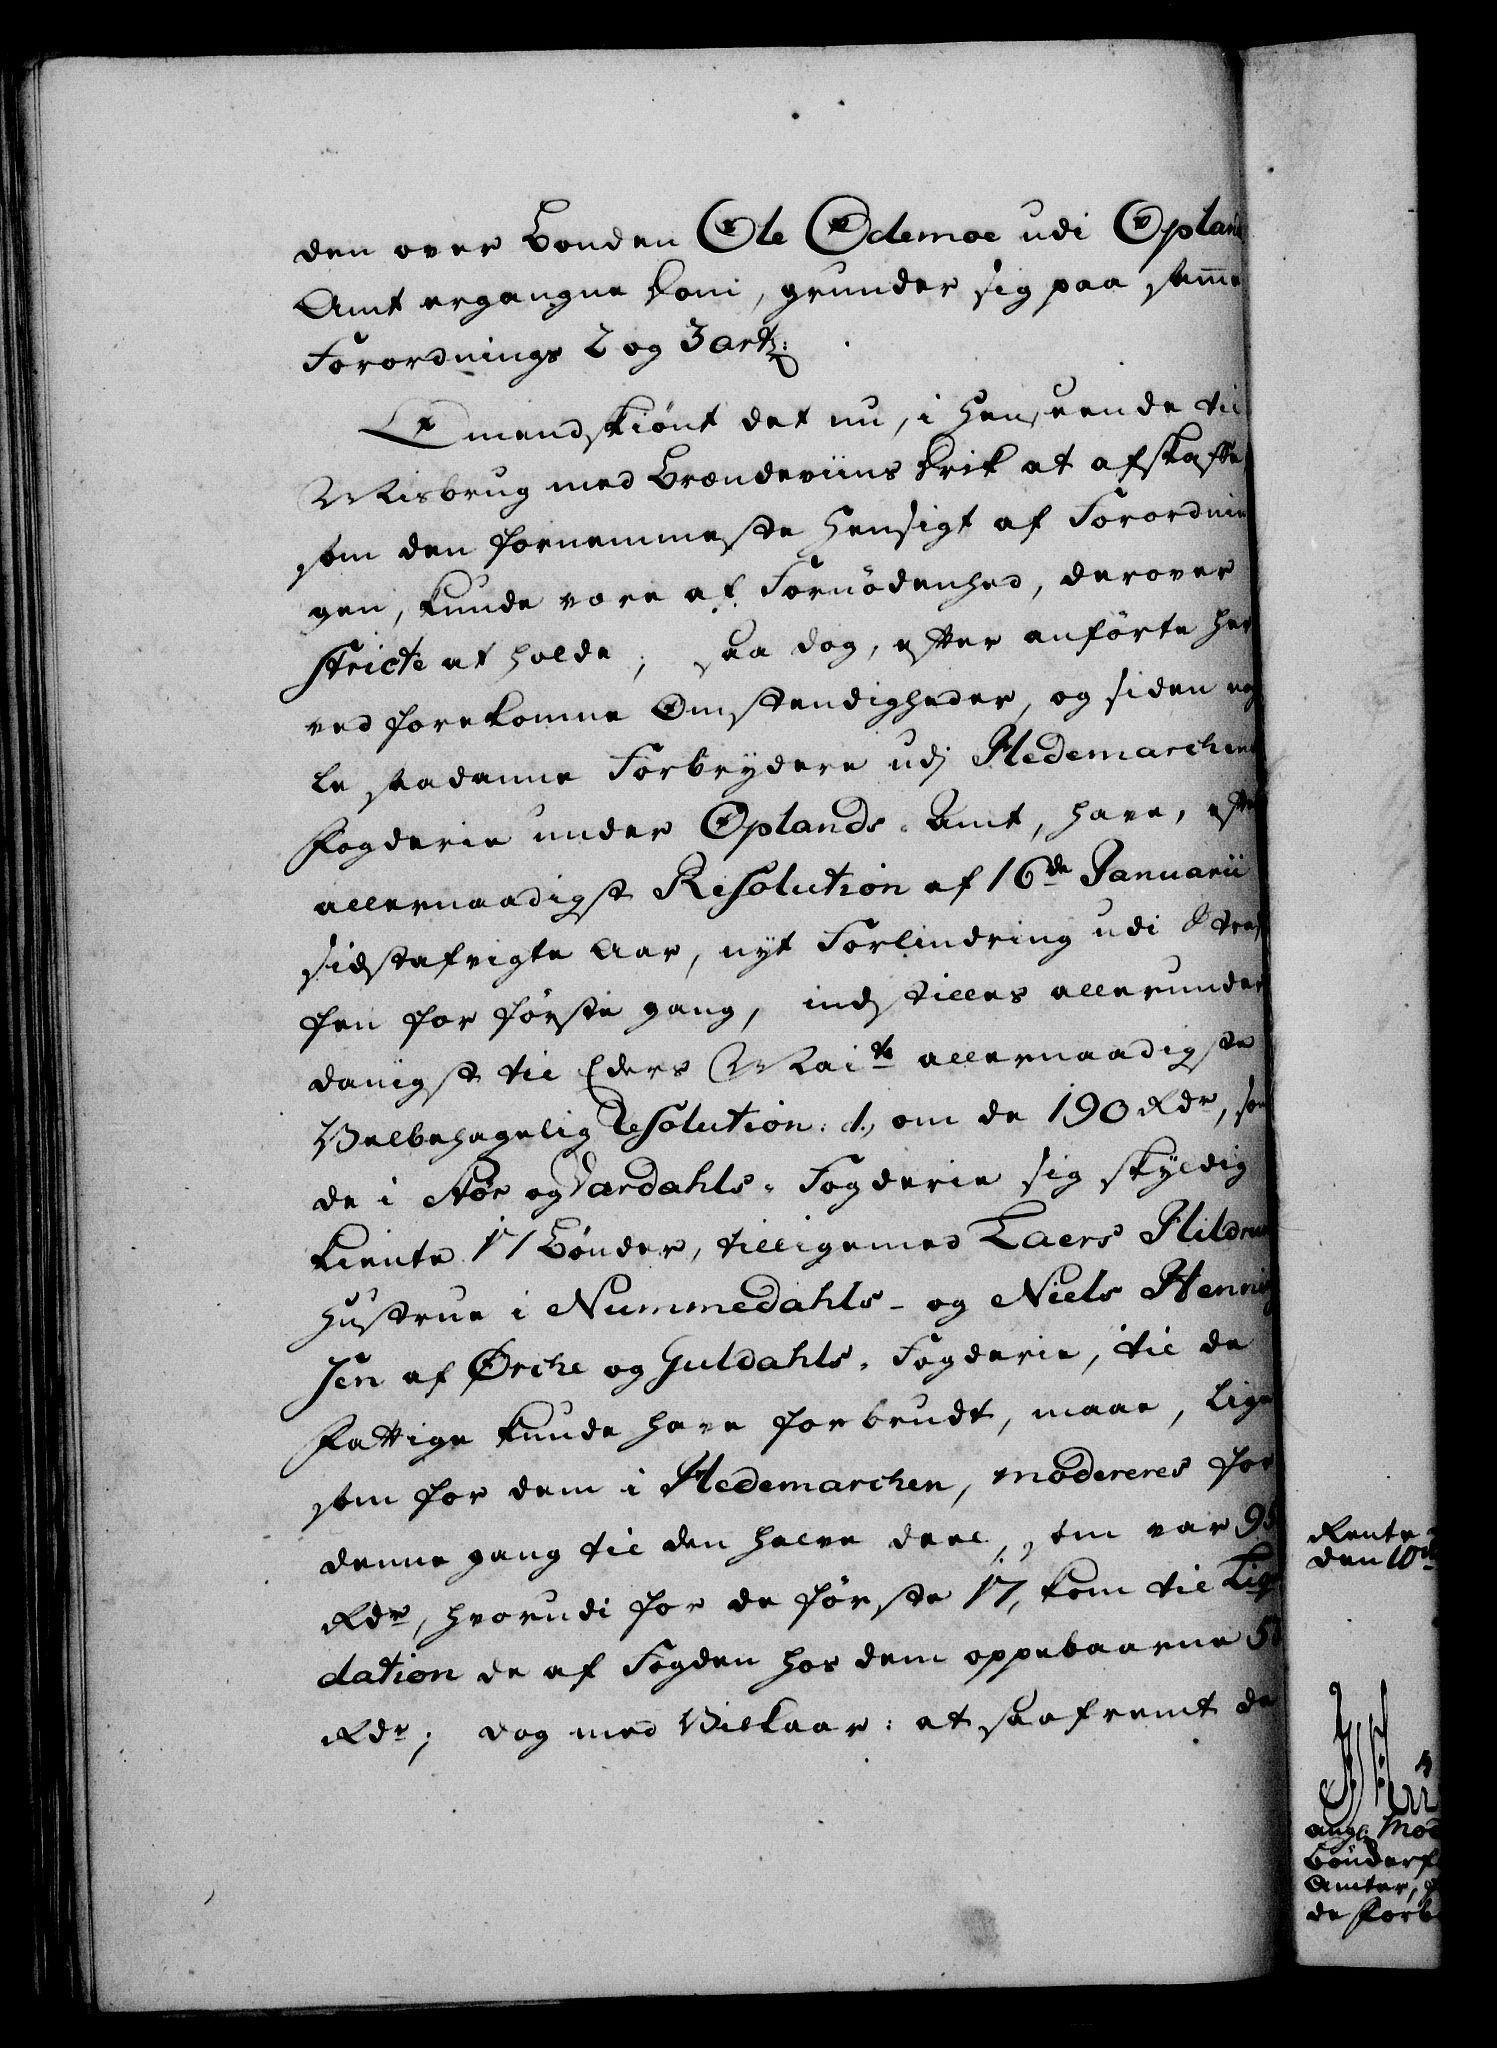 den over Bonden Ole Odemoe udi Opland
Amt ergangne Dom, grunder sig paa samme
Forordnings 2 og 3 art:
Omendskiönt det nu, i Henseende til
Misbrug med Brændeviins Drik at afskaffe
som den fornemmeste Hensigt af Forordnin
gen, kunde være af Fornödenhed, derover
stricte at holde; saa dog, efter anförte her
ved forekomne Omstendigheder, og siden og
le saadanne Forbrydere udj Hedemarchens
Fogderie under Oplands Amt, have, efter
allernaadigst Resolution af 16de Januarii
sidstafvigte Aar, nyt Forlindring udi Straf
fen for förste gang, indstilles allerunder
danigst til Eders Maits allernaadigste
Velbehagelig Resolution: 1, om de 190 Rdr, som
de i Stör og Værdahls Fogderie sig skyldig
kiente 17 Bönder, tilligemed Laers Hildrem
Hustrue i Nummedahls- og Niels Hennig
sen af Örche og Guldahls Fogderie, til de
Fattige kunde have forbrudt, maae, lige
som for dem i Hedemarchen, modereres for
denne gang til den halve deel, som var 95
Rdr, hvorudi for de förste 17, kom til Liqvi
dation de af Fogden hos dem oppebaarne 50
Rdr; dog med Vilkaar: at saafremt de
Rente
den 10de
angl: Mod
Bönder f
Amter,
de forb